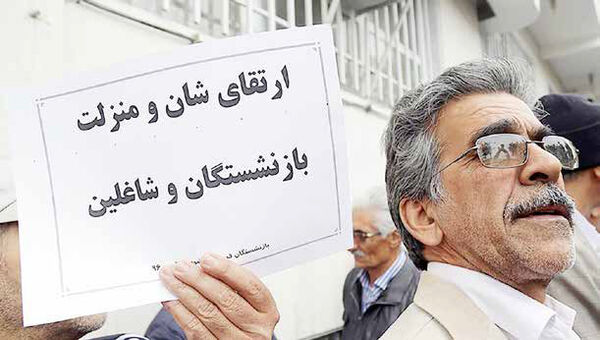 ارتقای شان و منزلت
بازنشستگان و شاغلین
بازنشستگان